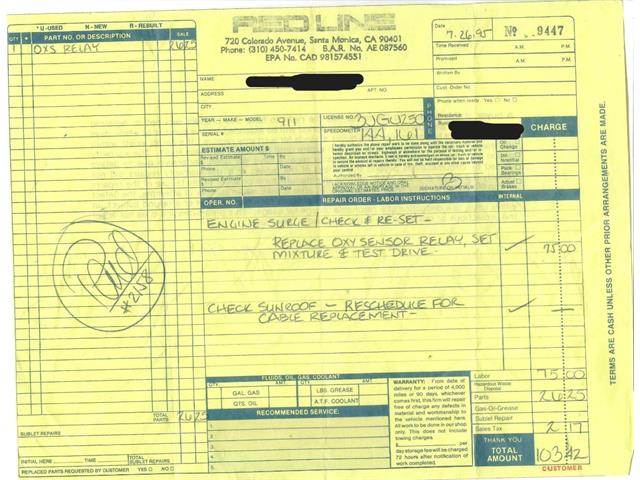 * U - USED N - NEW R - REBUILT
QTY. * PART NO. OR DESCRIPTION SALE
OXS RELAY 26 25
RED LINE
720 Colorado Avenue, Santa Monica, CA 90401
Phone: (310) 450-7414 B.A.R. No. AE 087560
EPA No. CAD 981574551
Date 7.26.95 No. 9447
Time Received A.M. P.M.
Promised A.M. P.M.
Written By
Cust. Order No.
Phone when ready Yes No
PHONE
Residence
NAME
ADDRESS APT. NO
CITY
YEAR - MAKE - MODEL 911
LICENSE NO.
SERIAL #
SPEEDOMETER 144,161
ESTIMATE AMOUNT $
Revised Estimate $ Time By
Date Phone
Revised Estimate $ Time By
Date Phone
Oil Change
Pack Bearings
Adjust Brakes
CHARGE
OPER. NO. REPAIR ORDER - LABOR INSTRUCTIONS INTERNAL
ENGINE SURGE / CHECK & RE-SET -
REPLACE OXY SENSOR RELAY, SET ✓ 75 00
MIXTURE & TEST DRIVE -
CHECK SUNROOF - RESCHEDULE FOR ✓ -
CABLE REPLACEMENT -
Paid
#2158
TERMS ARE CASH UNLESS OTHER PRIOR ARRANGEMENTS ARE MADE.
FLUIDS, OIL GAS, COOLANT
QTY AMT QTY AMT
GAL. GAS LBS. GREASE
QTS. OIL A.T.F. COOLANT
RECOMMENDED SERVICE:
WARRANTY: From date of
delivery for a period of 4,000
miles or 90 days, whichever
comes first, this firm will repair
free of charge any defects in
material and workmanship to
the vehicle mentioned here.
All work to be done in our shop
only. This does not include
towing charges.
$ per
day storage fee will be charged
72 hours after notification of
work completed.
Labor 75 00
Hazardous Waste Disposal
Parts 26 25
Gas-Oil-Grease
Sublet Repair
Sales Tax 2 17
THANK YOU
TOTAL AMOUNT 103.42
CUSTOMER
TOTAL PARTS 26 25
SUBLET REPAIRS
INITIAL HERE TIME TOTAL SUBLET REPAIRS
REPLACED PARTS REQUESTED BY CUSTOMER YES NO